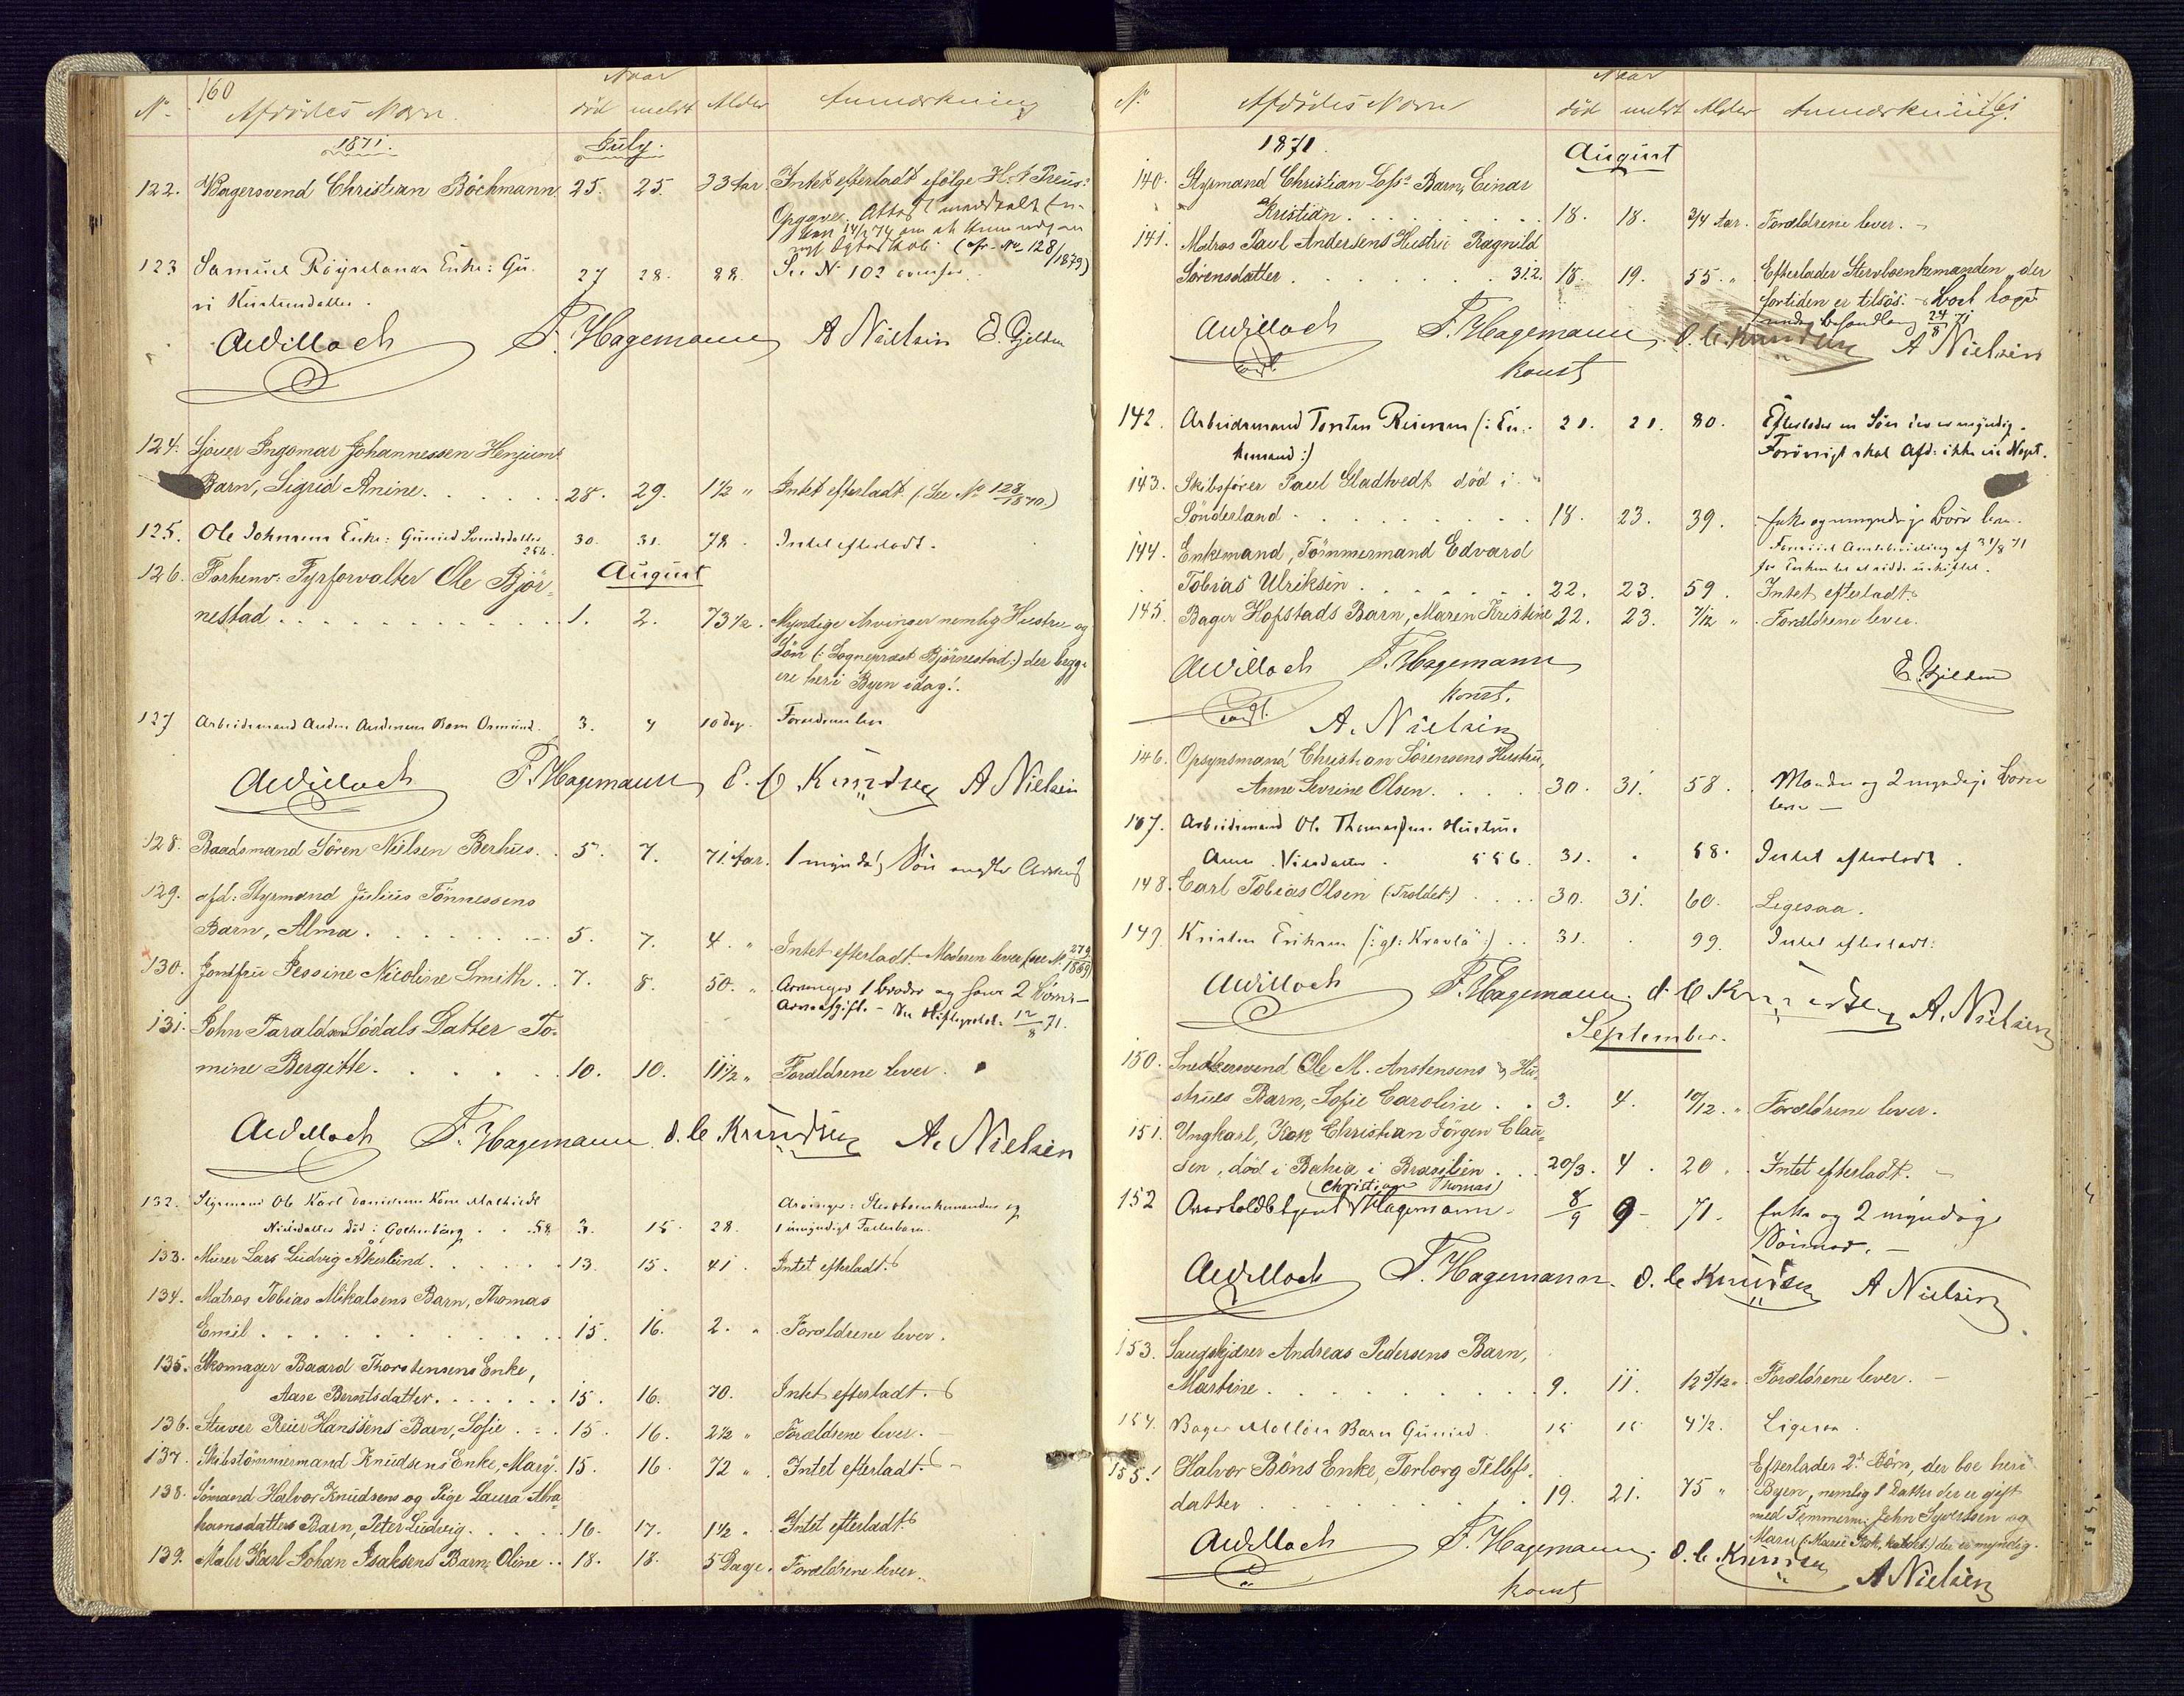 160
No Afdødes Navn. Naar død meldt Alder Anmærkning
1871. July.
122. Bagersvend Christian Böckmann 25. 25. 33 Aar. Intet efterladt ifølge H. A. Preus'
Opgave.
(cfr. No 128/1879)
123 Samuel Röyselands Enke: Gu- 27 28. 88. See No 102
ri
AWilloch F. Hagemann A Nielsen E. Gjelden
124. Gjøver Ingomar Johannessen Henjums
Barn, Sigrid Anine. 28. 29. 1½ " Intet efterladt. (See No 128/1870.)
125. Ole Johnsens Enke: Gunild 256. 30. 31. 78. Intet efterladt.
126. Forhenv: Fyrforvalter Ole Bjør- August
nestad 1. 2. 73½. Myndige Arvinger nemlig Hustru og
Søn (: Sogneprest Bjørnestad:) der begge
ere her i Byen idag!.
127 Arbeidsmand Anders Andersens Barn Osmund. 3. 4 10 dage Forældrene lever
AWilloch F. Hagemann O. C. Knudsen A Nielsen
128. Baadsmand Sören Nielsen Berhus. 5. 7. 71 Aar. 1 myndig Søn
129. afd: Styrmand Julius Tönnessens
Barn, Alma. 5. 7. 4. " Intet efterladt. Moderen lever (see No 279/1869)
130. Jomfru Jessine Nicoline Smith. 7. 8. 50. " Arvinger 1 broder og hans 2 børn –
Arveafgift. – 12/8 71.
131. John Taraldsen Lödals Datter To-
mine Bergitte. 10. 10. 11½ " Forældrene lever.
AWilloch F. Hagemann O. C. Knudsen A. Nielsen
132. Styrmand Ole Karl Danielsens Kone Mathilde Arvinger: Sterboenkemanden og
Nielsdatter död i Gothenborg 58 3. 15. 28. 1 umyndigt Fællesbarn.
133. Murer Lars Ludvig Åkerlund. 13. 15. 41. Intet efterladt.
134. Matros Tobias Mikalsens Barn, Thomas
Emil. 15. 16. 2. " Forældrene lever.
135. Skomager Baard Thorstensens Enke,
Aase Berntsdatter. 15. 16. 70. Intet efterladt.
136. Stuver Reier Hanssens Barn, Sofie. 15. 16. 2½ " Forældrene lever.
137. Skibstömmermand Knudsens Enke, Mary. 15. 16. 72 " Intet efterladt.
138. Sömand Halvor Knudsens og Pige Laura Abra-
hamsdatters Barn, Peter Ludvig. 16. 17. 1½ " Intet efterladt.
139. Maler Karl Johan Isaksens Barn, Oline. 18. 18. 5 Dage. Forældrene lever.
161
No Afdødes Navn Naar død meldt Alder Anmærkning.
1871. August
140. Styrmand Christian Lass's Barn, Einar
Kristian. 18. 18. ¾ Aar. Forældrene lever. –
141. Matros Paul Andersens Hustru Ragnild
Sörensdatter. 312. 18. 19. 55. " Efterlader Stervboenkemanden, der
fortiden er tilsös. – Boet taget
under behandling 24/8 71
AWilloch F. Hagemann O. C. Knudsen A Nielsen
const. konst
142. Arbeidsmand Torsten Reiersen (: En- 21. 21. 80. Efterlader en Sön der er myndig.
kemand:) Forövrigt skal Afd: ikke eie Noget.
143. Skibsförer Paul Gladtvedt död i
Sönderland. 18. 23. 39. Enke og umyndige børn lever.
31/8 71
144. Enkemand, Tömmermand Edvard
Tobias Ulriksen. 22. 23. 59. Intet efterladt.
145. Bager Hofstads Barn, Maren Kristine 22. 23. 7/12 " Forældrene lever.
AWilloch F. Hagemann E. Gjelden
const. konst.
A. Nielsen
146. Opsynsmand Christian Sörensens Hustru,
Anne Sevrine Olsen. 30. 31. 58. Manden og 2 myndige børn
lever –
147. Arbeidsmand Ole Thomassens Hustru
Anne 556. 31. " 58. Intet efterladt.
148. Carl Tobias Olsen (: Troldet:) 30. 31. 60. Ligesaa.
149. Kristen Eriksen (: gl: Kravlä:) 31. " 99. Intet efterladt:
AWilloch F. Hagemann O. C. Knudsen A. Nielsen
September.
150. Snedkersvend Ole M. Anstensens & Hu-
strues Barn, Sofie Caroline. 3. 4. 10/12. " Forældrene lever.
151. Ungkarl, Kok Christian Jörgen Clau-
sen, död i Bahia i Brasilien. 20/3. 4. 20. Intet efterladt. –
(Christian Thomas)
152 Overtoldbetjent Hagemann. 8/9 9 – 71. Enke og 2 myndige
Sønner. –
AWilloch F. Hagemann. O. C. Knudsen A Nielsen
153. Saugskjærer Andreas Pedersens Barn,
Martine. 9. 11. 12 5/12. Forældrene lever. –
154. Bager Mollöis Barn Gunild. 15 15 4½. Ligesaa.
155. Halvor Böns Enke, Torborg Tellefs- Efterlader 2de Börn, der boe heri
datter. 19. 21. 75 " Byen, nemlig 1 Datter der er gift
med Tømmerm: John Syvertsen og
Maren (: Marie Kok, kaldet:) der er myndig.
AWilloch F. Hagemann O. C. Knudsen A Nielsen
konst